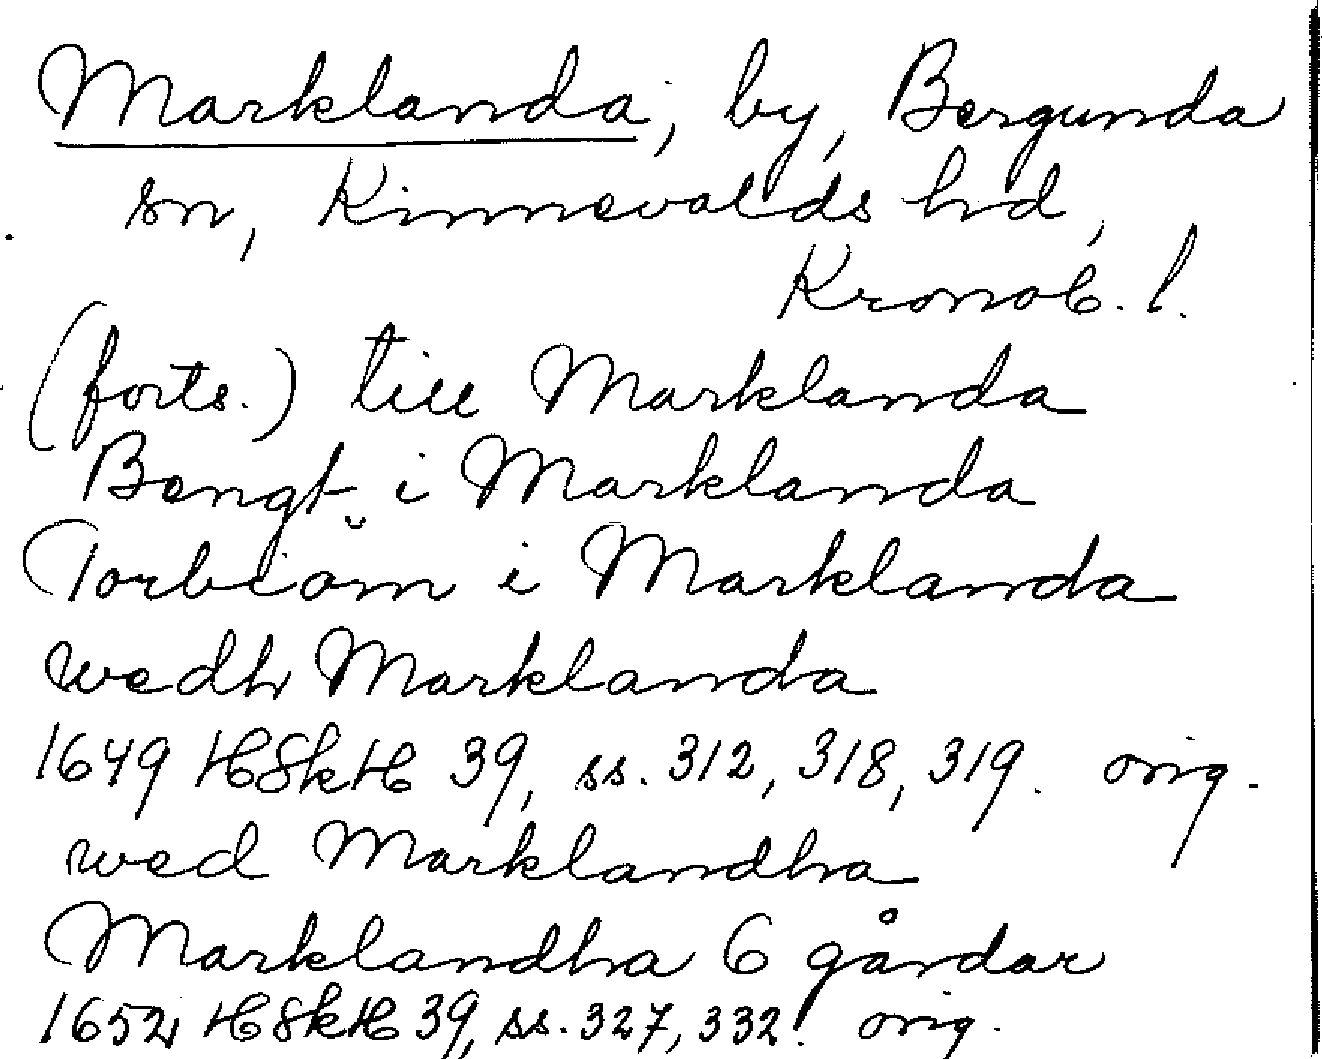 Marklanda, by, Bergunda
sn, Kinnevalds hd,
Kronob. l.
(forts.) till Marklanda
Bengt i Marklanda
Torbiörn i Marklanda
wedh Marklanda
1649 HSkH 39, ss. 312, 318, 319. orig.
wed Marklandha
Marklandha 6 gårdar
1652 HSkH 39, ss. 327, 332. orig.